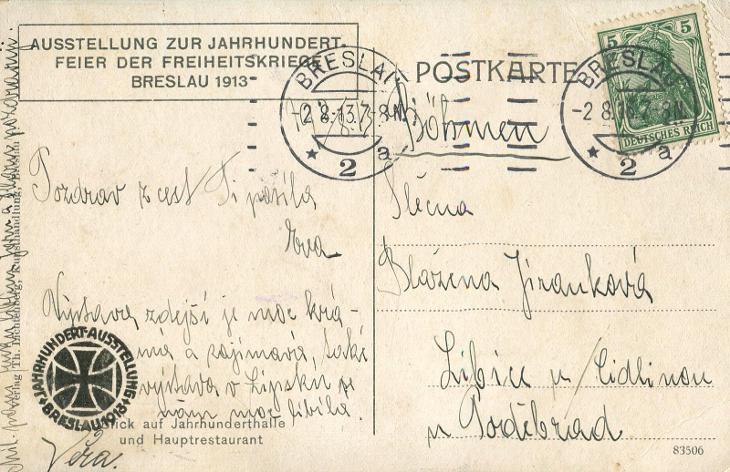 AUSSTELLUNG ZUR JAHRHUNDERT-
FEIER DER FREIHEITSKRIEGE
BRESLAU 1913
POSTKARTE
BRESLAU
-2.8.13.7-8N.
2 a
BRESLAU
-2.8.13.7-8N.
2 a
5 5
DEUTSCHES REICH
Böhmen
Pozdrav z cest Ti posílá
Eva
Výstava zdejší je moc krás-
ná a zajímavá, také
výstava v Lipsku se
nám moc líbila.
Věra.
Slečna
Blažena Jiranková
Libice n/ Cidlinou
u Poděbrad
JAHRHUNDERT-AUSSTELLUNG
BRESLAU 1913
Blick auf Jahrhunderthalle
und Hauptrestaurant
Verlag Th. Lichtenberg, Kunsthandlung, Breslau
83506